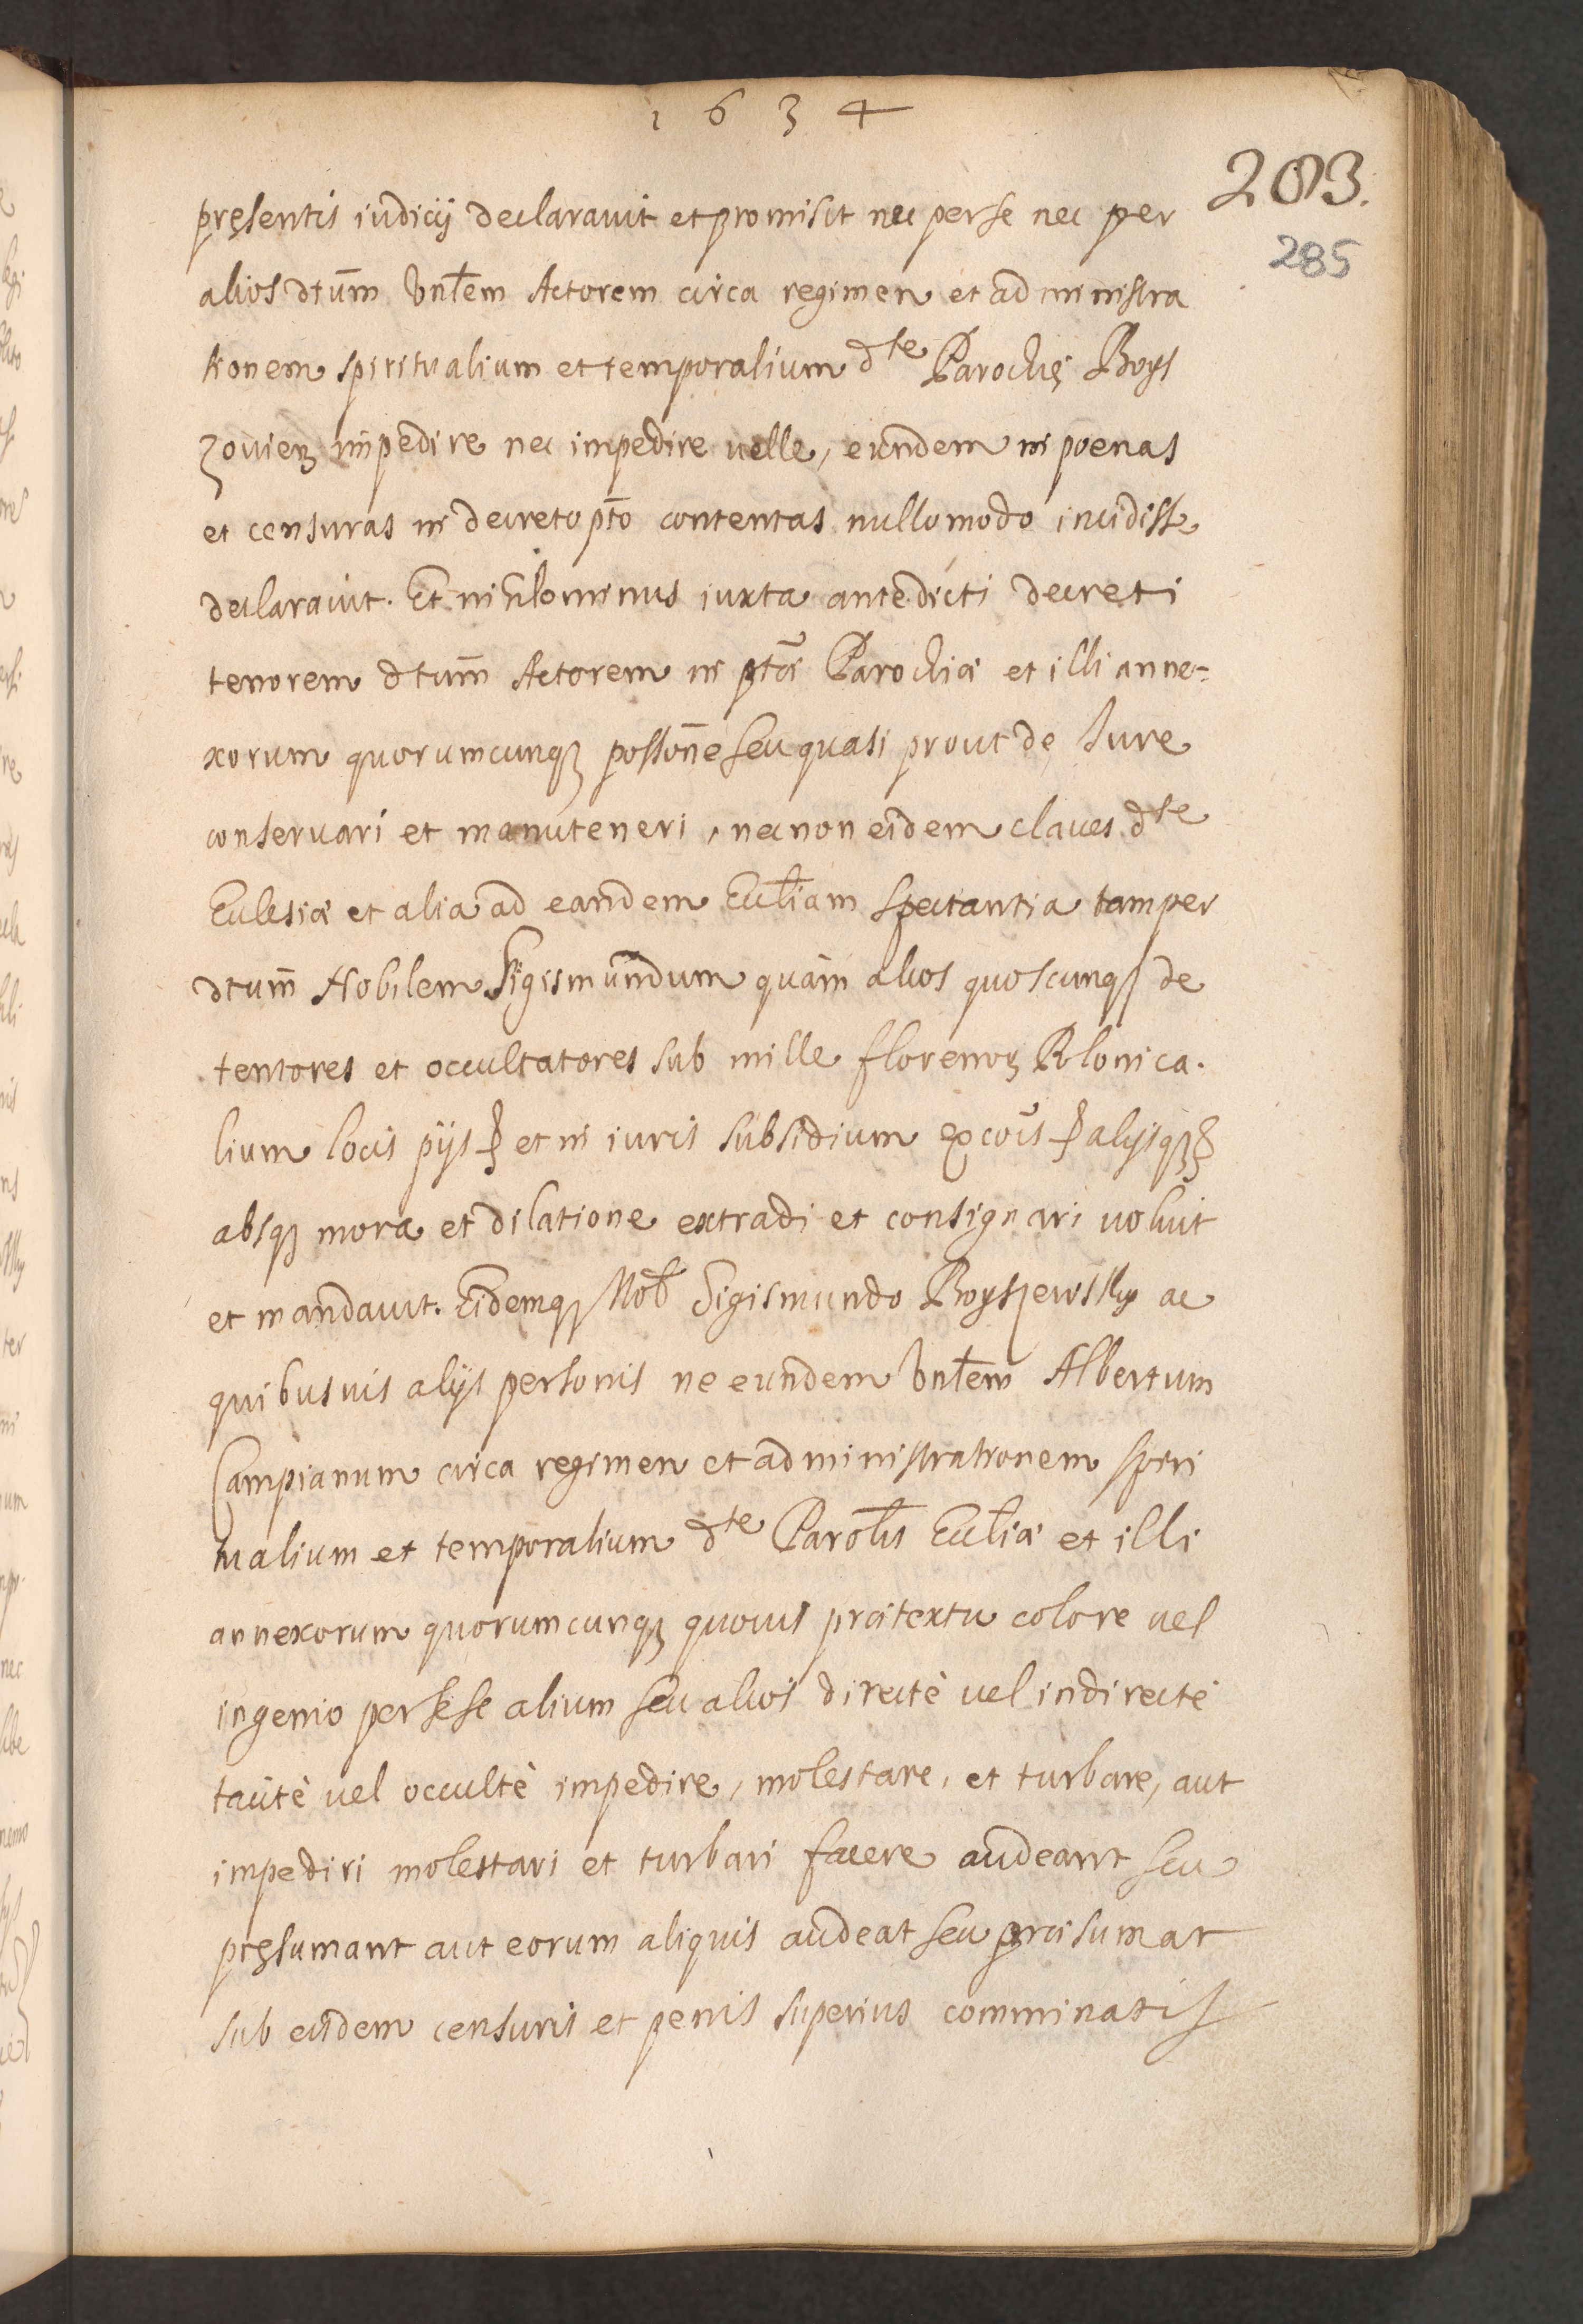 1634
203.
285
pręsentis iudicij declarauit et promisit nec perse nec per
alios dtum̄ Vnłem Actorem circa regimen et administra
tionem spiritualium et temporalium dte Parochię Boys
zouien impedire nec impedire uelle, eundem in poenas
et censuras in decreto pto contentas nullomodo incidisse
declarauit. Et nihilominus iuxta antedicti decreti
tenorem dtum̄ Actorem in ptæ Parochiæ et illi anne-
xorum quorumcunq possōne seu quasi prout de Iure
conseruari et manuteneri, necnon eidem claues dte
Ecclesiæ et alia ad eandem Eccłiam spectantia tam per
dtum̄ Nobilem Sigismundum quàm alios quoscunq de
tentores et occultatores sub mille florenor Polonica.
lium locis pijs p et in iuris subsidium excōis p alijsq
absq mora et dilatione extradi et consignari uoluit
et mandauit. Eidemq Nob Sigismundo Boyszewsky ac
quibusuis alijs personis ne eundem Vnłem Albertum
Campianum circa regimen et administrationem spiri
tualium et temporalium dte Parołis Eccłiæ et illi
annexorum quorumcunq quouis prætextu colore uel
ingenio per sese alium seu alios directè uel indirectè
tacitè uel occultè impedire, molestare, et turbare, aut
impediri molestari et turbari facere audeant seu
pręsumant aut eorum aliquis audeat seu præsumat
sub eisdem censuris et penis superius comminatis